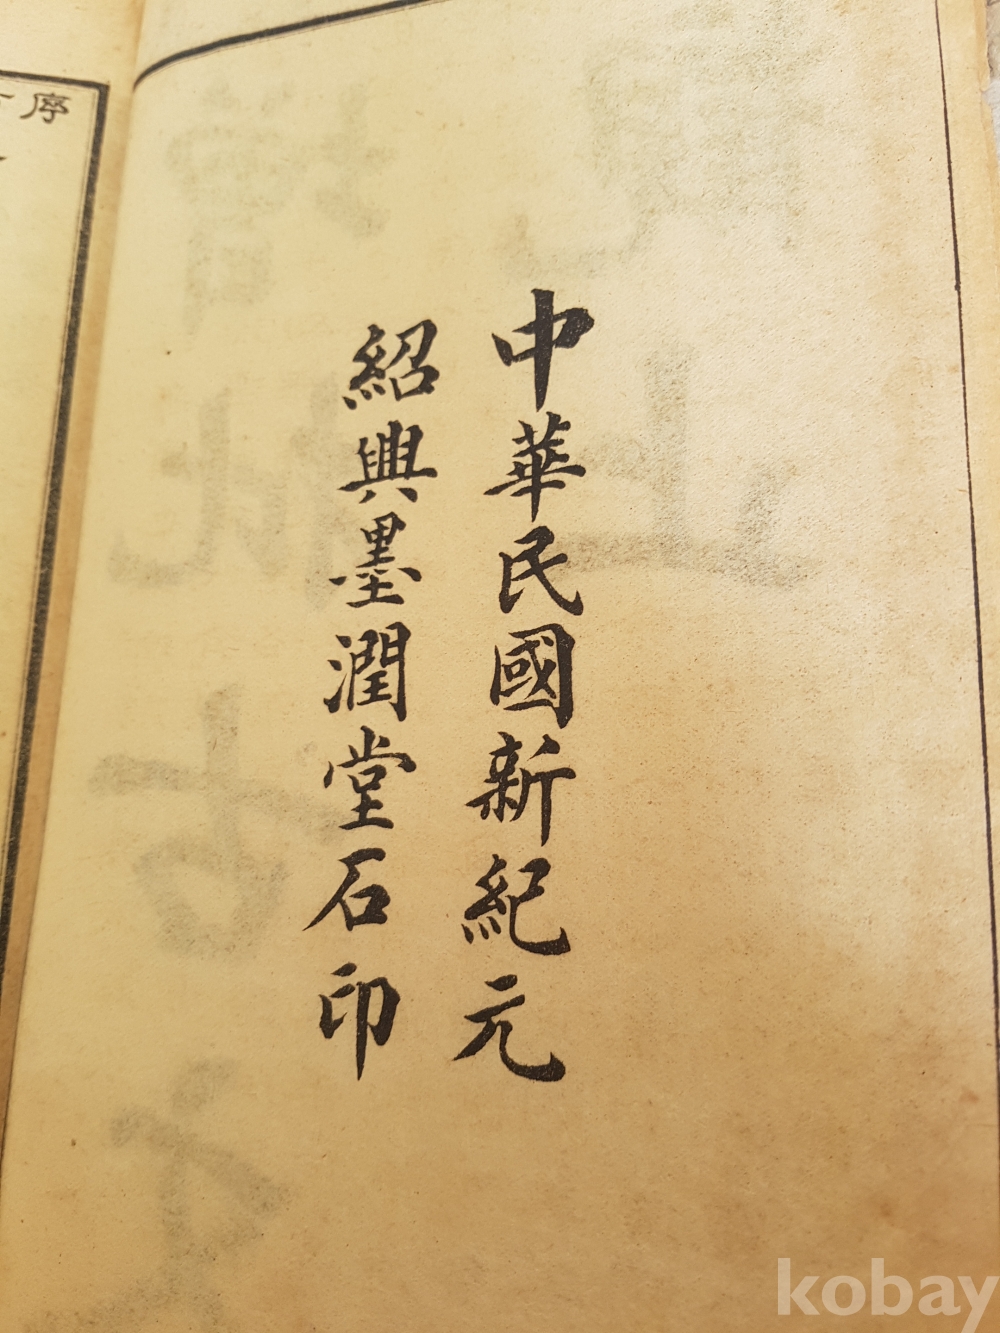 中華民國新紀元
紹興墨潤堂石印
序
kobay